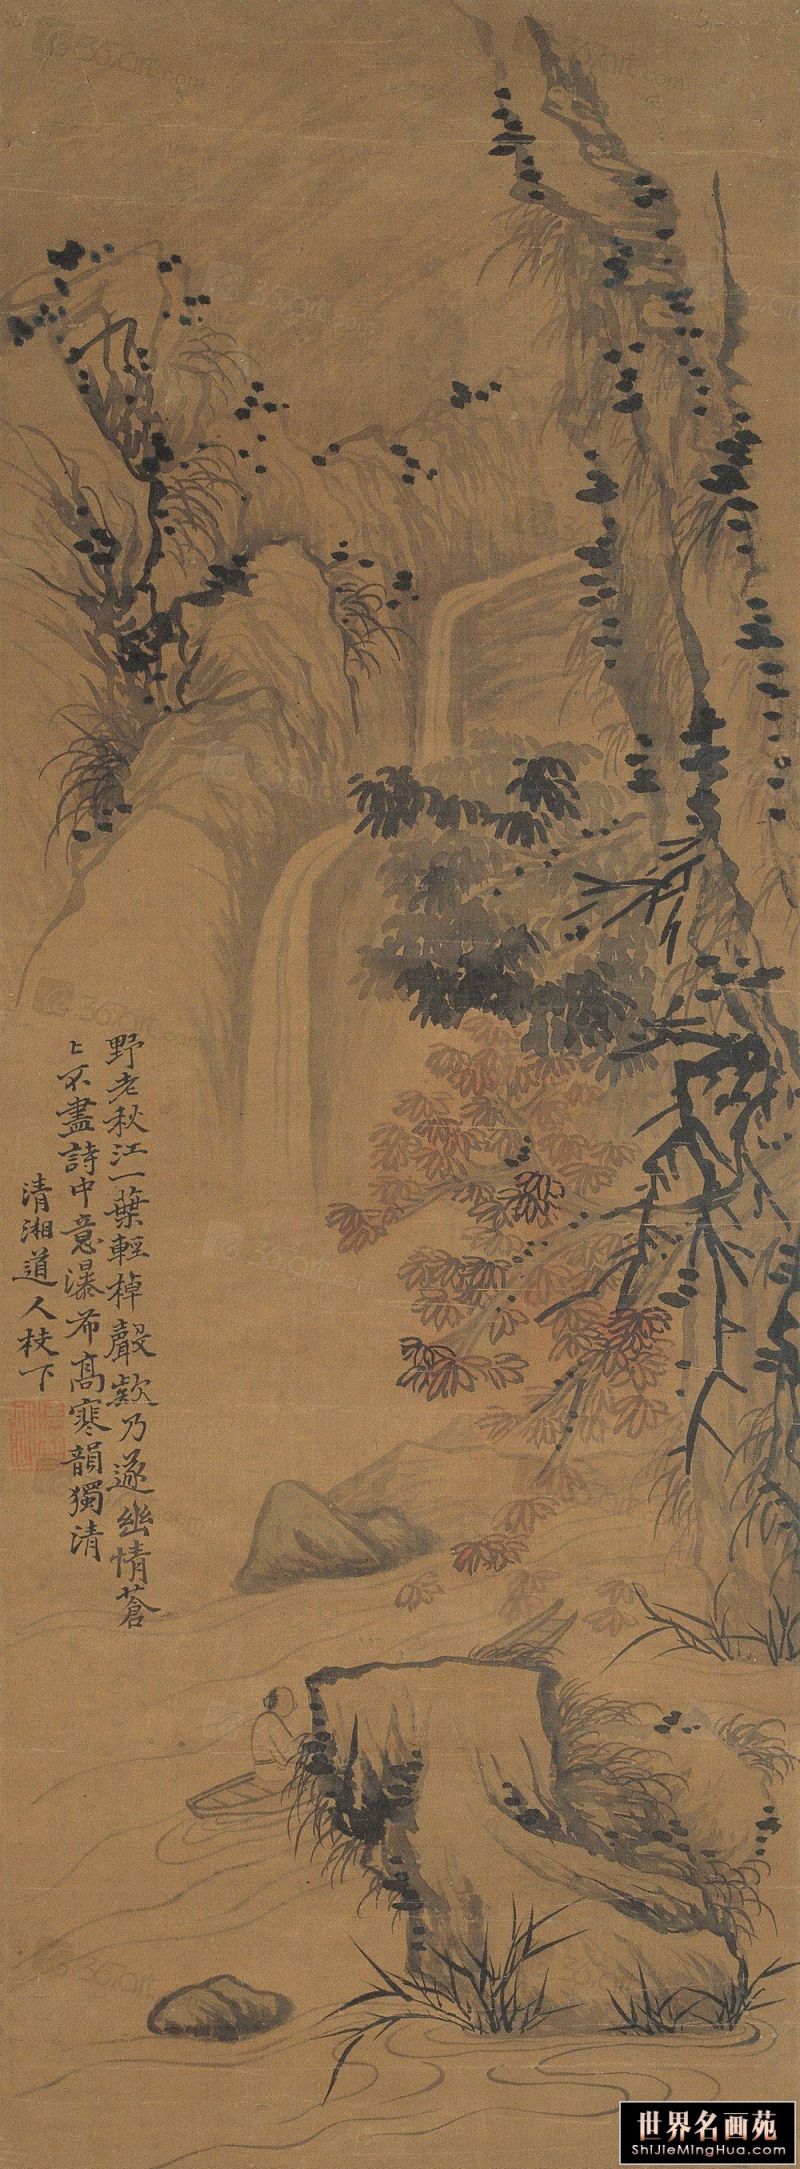 野老秋江一葉輕棹聲欸乃遂幽情蒼
〻不盡詩中意瀑布高寒韻獨清
清湘道人枝下
世界名画苑
ShiJieMingHua.com
365art.com